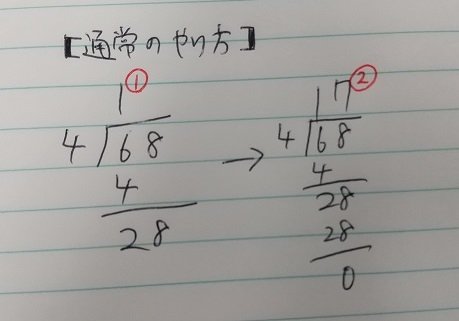 【通常のやり方】
1① → 17②
4)68 4)68
4 4
28 28
28
0